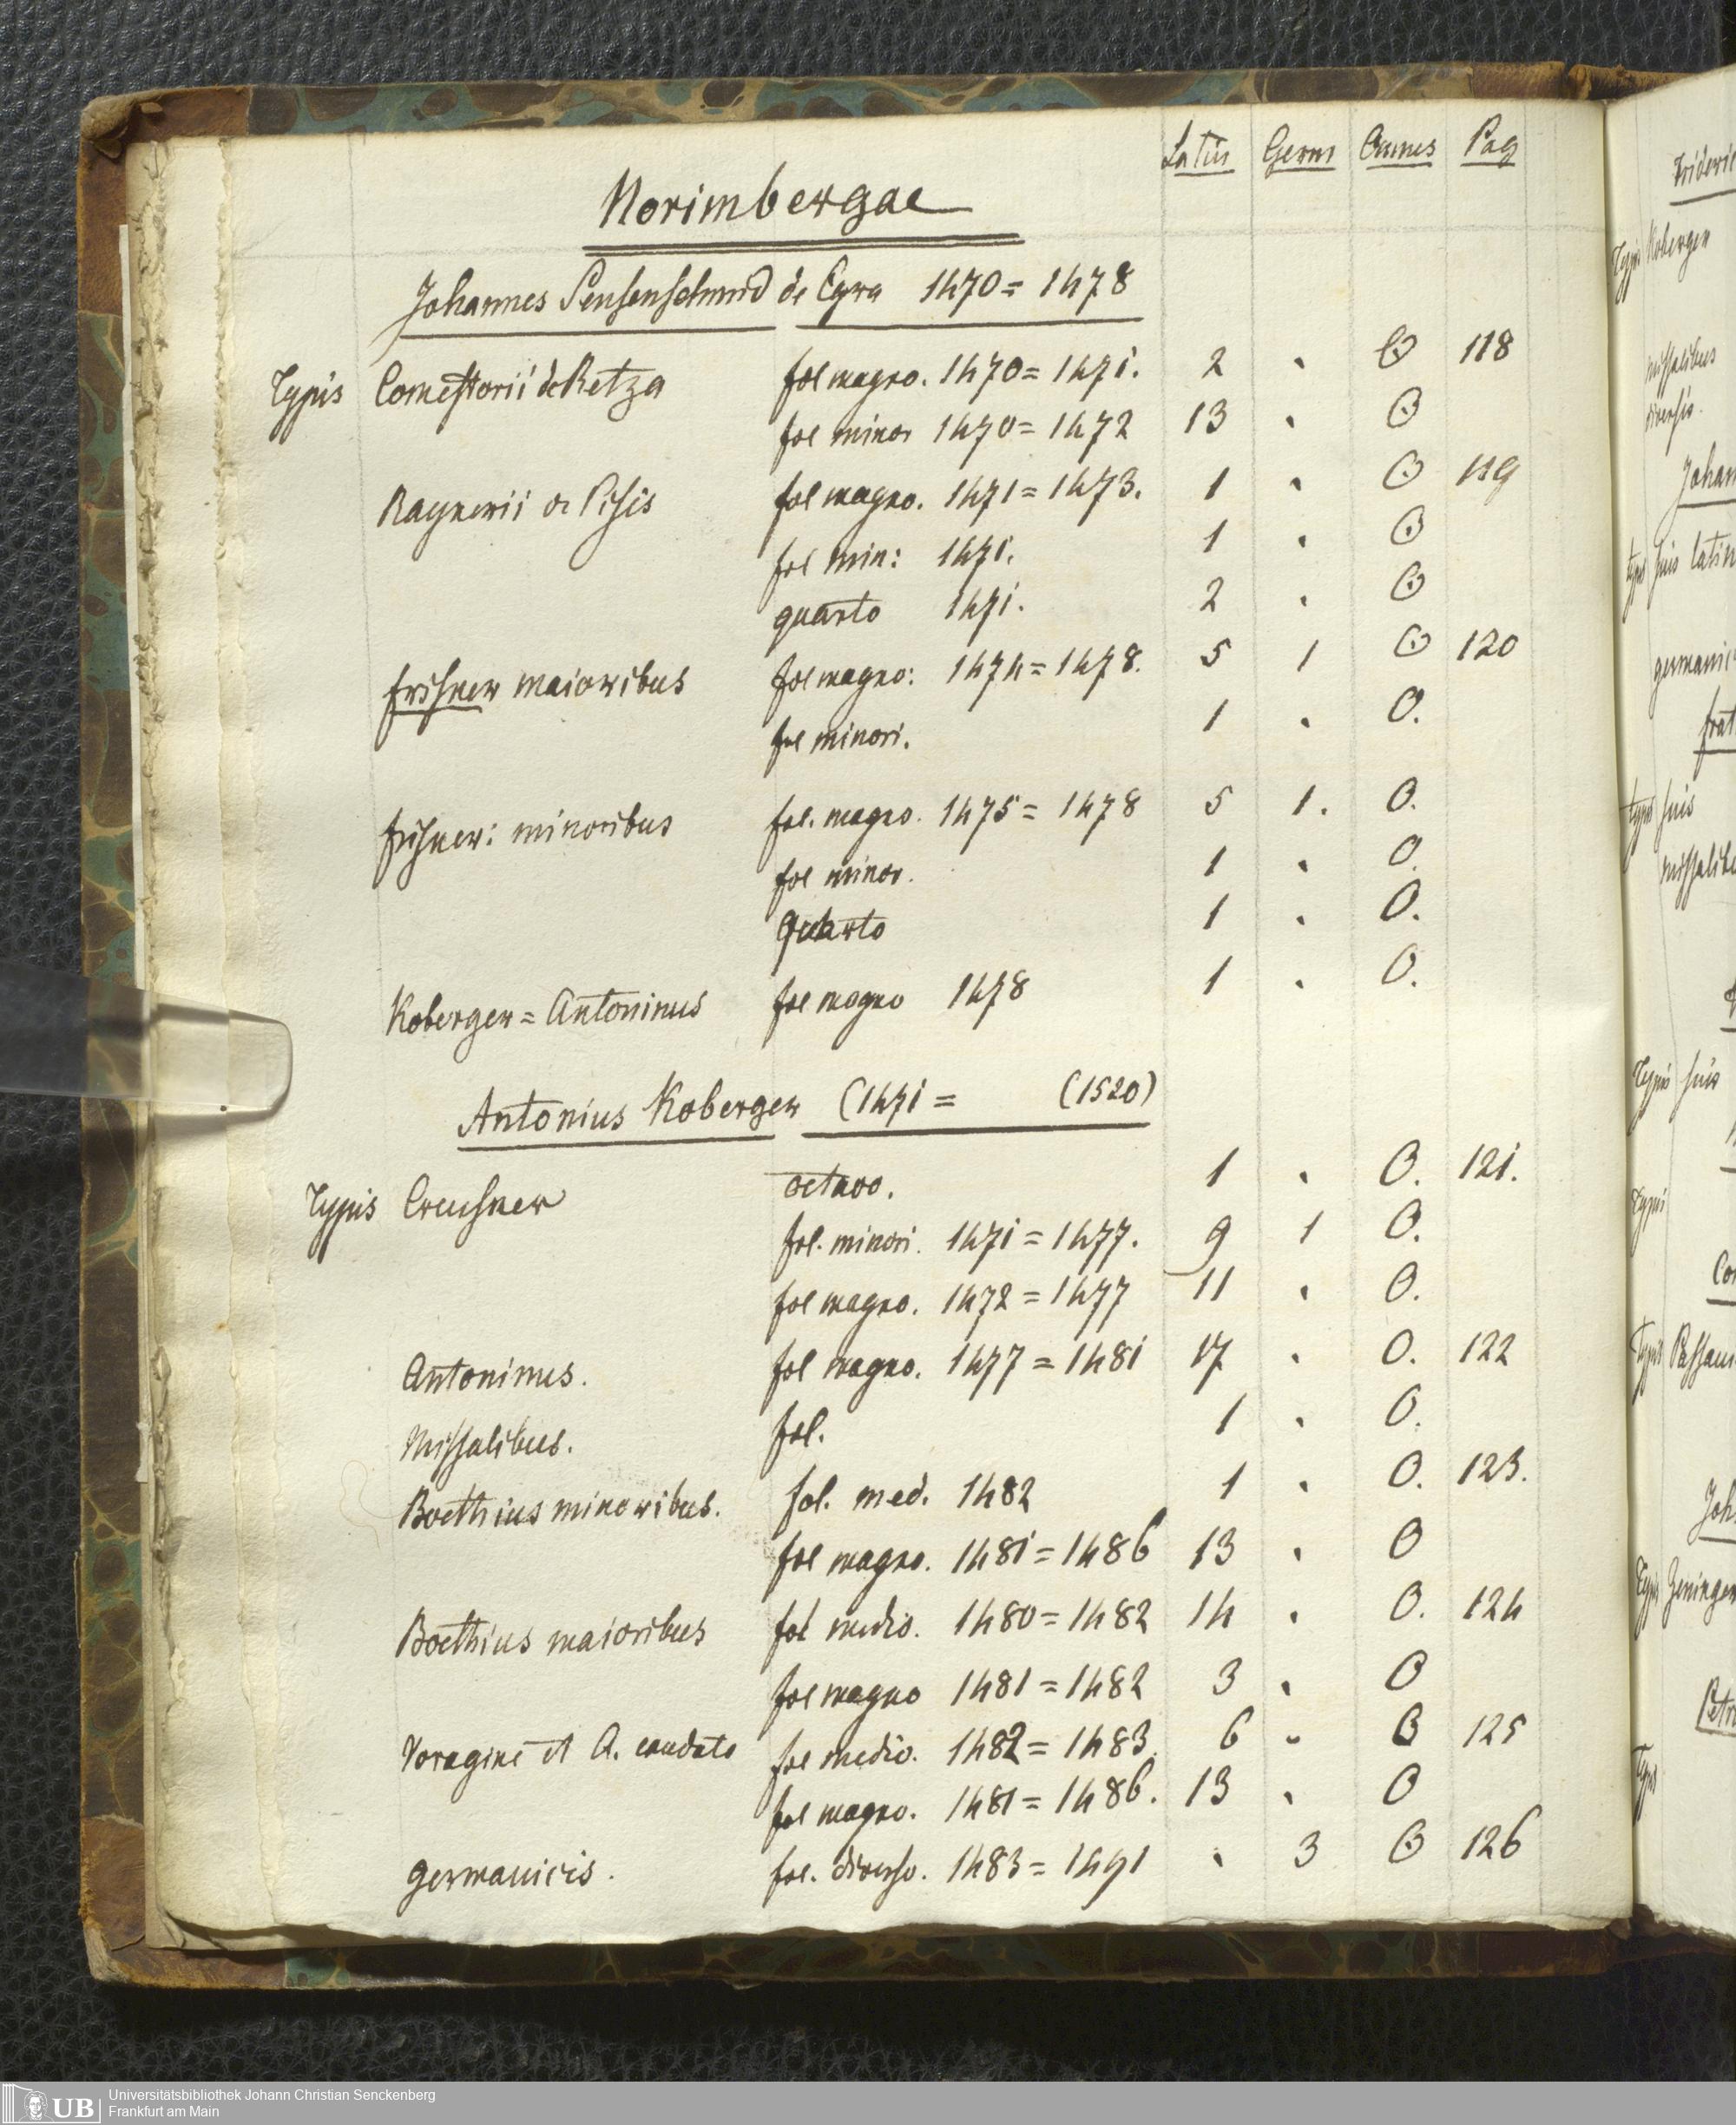 Latin Germ Omnes Pag
Norimbergae
Johannes Sensenschmid de Egra 1470 = 1478
Typis Comestorii de Retza fol magno. 1470 = 1471. 2 . O 118
fol minor 1470 = 1472 13 . O
Raynerii de Pisis fol magno. 1471 = 1473. 1 . O 119
fol min: 1471. 1 . O
quarto 1471. 2 . O
frisner maioribus fol magno: 1474 = 1478. 5 1 O 120
fol minori. 1 . O.
frisner: minoribus fol. magno. 1475 = 1478 5 1. O.
fol minor. 1 . O.
Quarto 1 . O.
Koberger = Antoninus fol magno 1478 1 . O.
Antonius Koberger (1471 = (1520)
Typis Creusner octavo. 1 . O. 121.
fol. minori. 1471 = 1477. 9 1 O.
fol magno. 1472 = 1477 11 . O.
Antoninus. fol magno. 1477 = 1481 17 . O. 122
Missalibus. fol. 1 . O.
Boethius minoribus. fol. med. 1482 1 . O. 123.
fol magno. 1481 = 1486 13 . O
Boethius maioribus fol medio. 1480 = 1482 14 . O. 124
fol magno 1481 = 1482 3 . O
Voragine et A. caudato fol medio. 1482 = 1483. 6 . O 125
fol magno. 1481 = 1486. 13 . O
germanicis. fol. diverso. 1483 = 1491 . 3 O 126
Typis Koberger
missalibus
diversis.
typis suis latin
germanic
frat
typis suis
Typis suis
Typis
Typis
UB Universitätsbibliothek Johann Christian Senckenberg
Frankfurt am Main